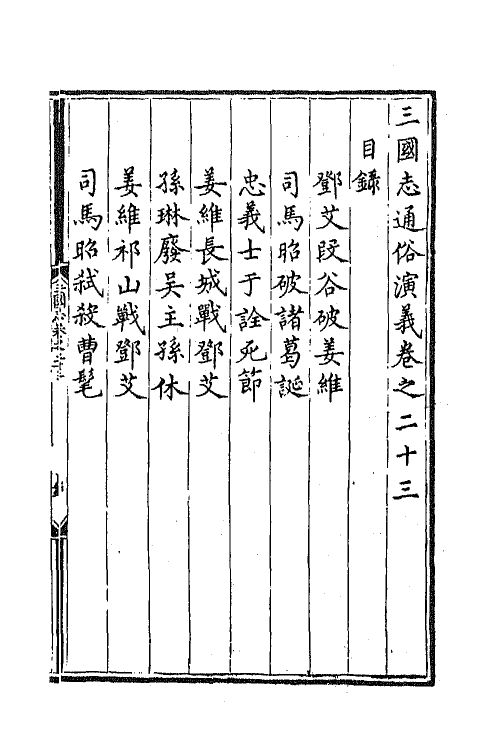 三國志通俗演義卷之二十三
目錄
鄧艾段谷破姜維
司馬昭破諸葛誕
忠義士于詮死節
姜維長城戰鄧艾
孫琳廢吳主孫休
姜維祁山戰鄧艾
司馬昭弒殺曹髦